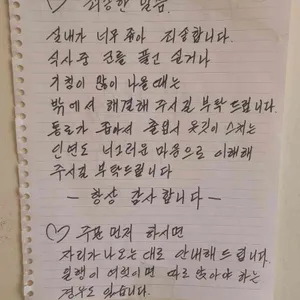 ♡ 죄송한 말씀.
실내가 너무 좁아 죄송합니다.
식사 중 코를 풀고 싶거나
기침이 많이 나올 때는
밖에서 해결해 주시길 부탁드립니다.
통로가 좁아서 출입시 옷깃이 스치는
인연도 너그러운 마음으로 이해해
주시길 부탁드립니다
— 항상 감사합니다 —
♡ 주문 먼저 하시면
자리가 나오는 대로 안내해 드립니다.
일행이 여럿이면 따로 앉아야 하는
경우도 있습니다.